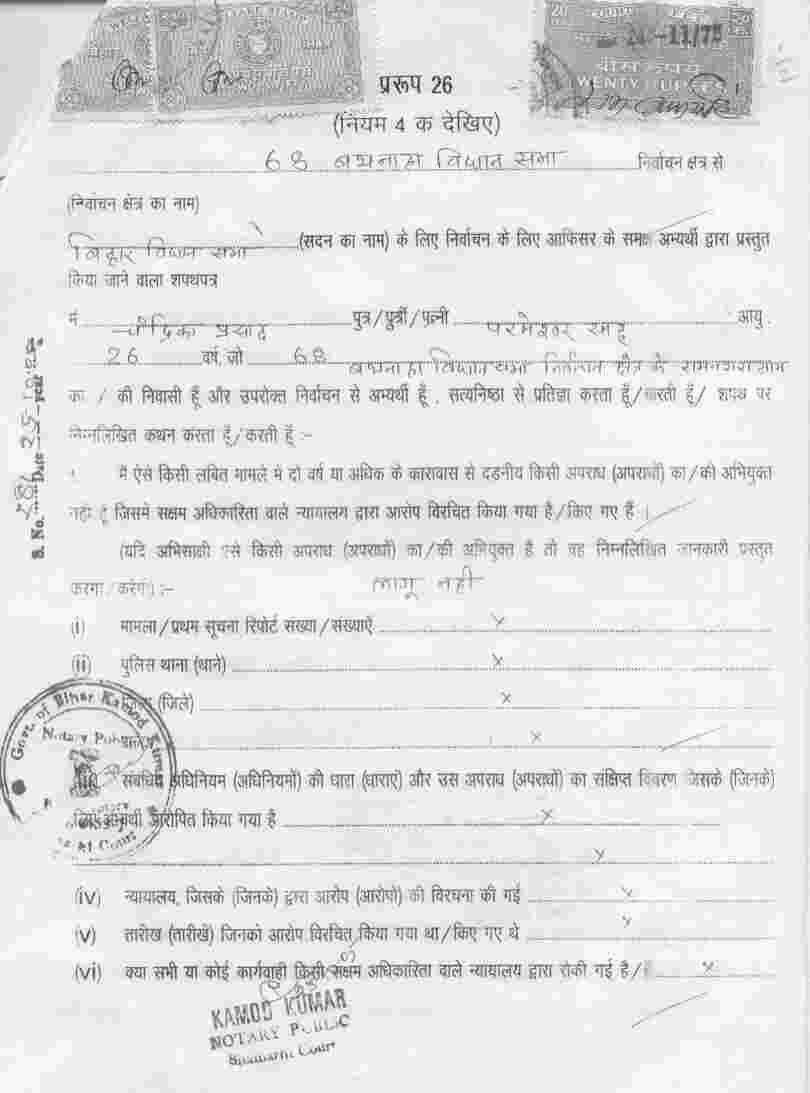 WELFARE STAMP
20 20
-11/75
बीस रुपये
TWENTY RUPEES
प्ररूप 26
(नियम 4 क देखिए)
68 बथनाहा विधान सभा निर्वाचन क्षेत्र से
(निर्वाचन क्षेत्र का नाम)
बिहार विधान सभा (सदन का नाम) के लिए निर्वाचन के लिए आफिसर के समक्ष अभ्यर्थी द्वारा प्रस्तुत
किया जाने वाला शपथपत्र
में चंद्रिका प्रसाद पुत्र/पुत्री/पत्नी परमेश्वर साह आयु
26 वर्ष, जो 68 बथनाहा विधान सभा निर्वाचन क्षेत्र के
का / की निवासी हूँ और उपरोक्त निर्वाचन से अभ्यर्थी हूँ , सत्यनिष्ठा से प्रतिज्ञा करता हूँ/करती हूँ/ शपथ पर
निम्नलिखित कथन करता हूँ/करती हूँ :-
में ऐसे किसी लंबित मामले में दो वर्ष या अधिक के कारावास से दंडनीय किसी अपराध (अपराधों) का/की अभियुक्त
नहीं हूँ जिसमें सक्षम अधिकारिता वाले न्यायालय द्वारा आरोप विरचित किया गया है/किए गए हैं ।
(यदि अभिसाक्षी ऐसे किसी अपराध (अपराधों) का/की अभियुक्त है तो वह निम्नलिखित जानकारी प्रस्तुत
करेगा/करेगी) :- लागू नहीं
(i) मामला/प्रथम सूचना रिपोर्ट संख्या/संख्याएँ x
(ii) पुलिस थाना (थाने) x
(जिले) x
x
संबंधित अधिनियम (अधिनियमों) की धारा (धाराएं) और उस अपराध (अपराधों) का संक्षिप्त विवरण जिसके (जिनके)
लिए अभ्यर्थी आरोपित किया गया है x
x
(iv) न्यायालय, जिसके (जिनके) द्वारा आरोप (आरोपों) की विरचना की गई x
(v) तारीख (तारीखें) जिनको आरोप विरचित किया गया था/किए गए थे x
(vi) क्या सभी या कोई कार्यवाही किसी सक्षम अधिकारिता वाले न्यायालय द्वारा रोकी गई है/ x
KAMOD KUMAR
NOTARY PUBLIC
Sitamarhi Court
Govt. of Bihar Kamod Kumar
Notary Public
Court
S. No. Date 25 year